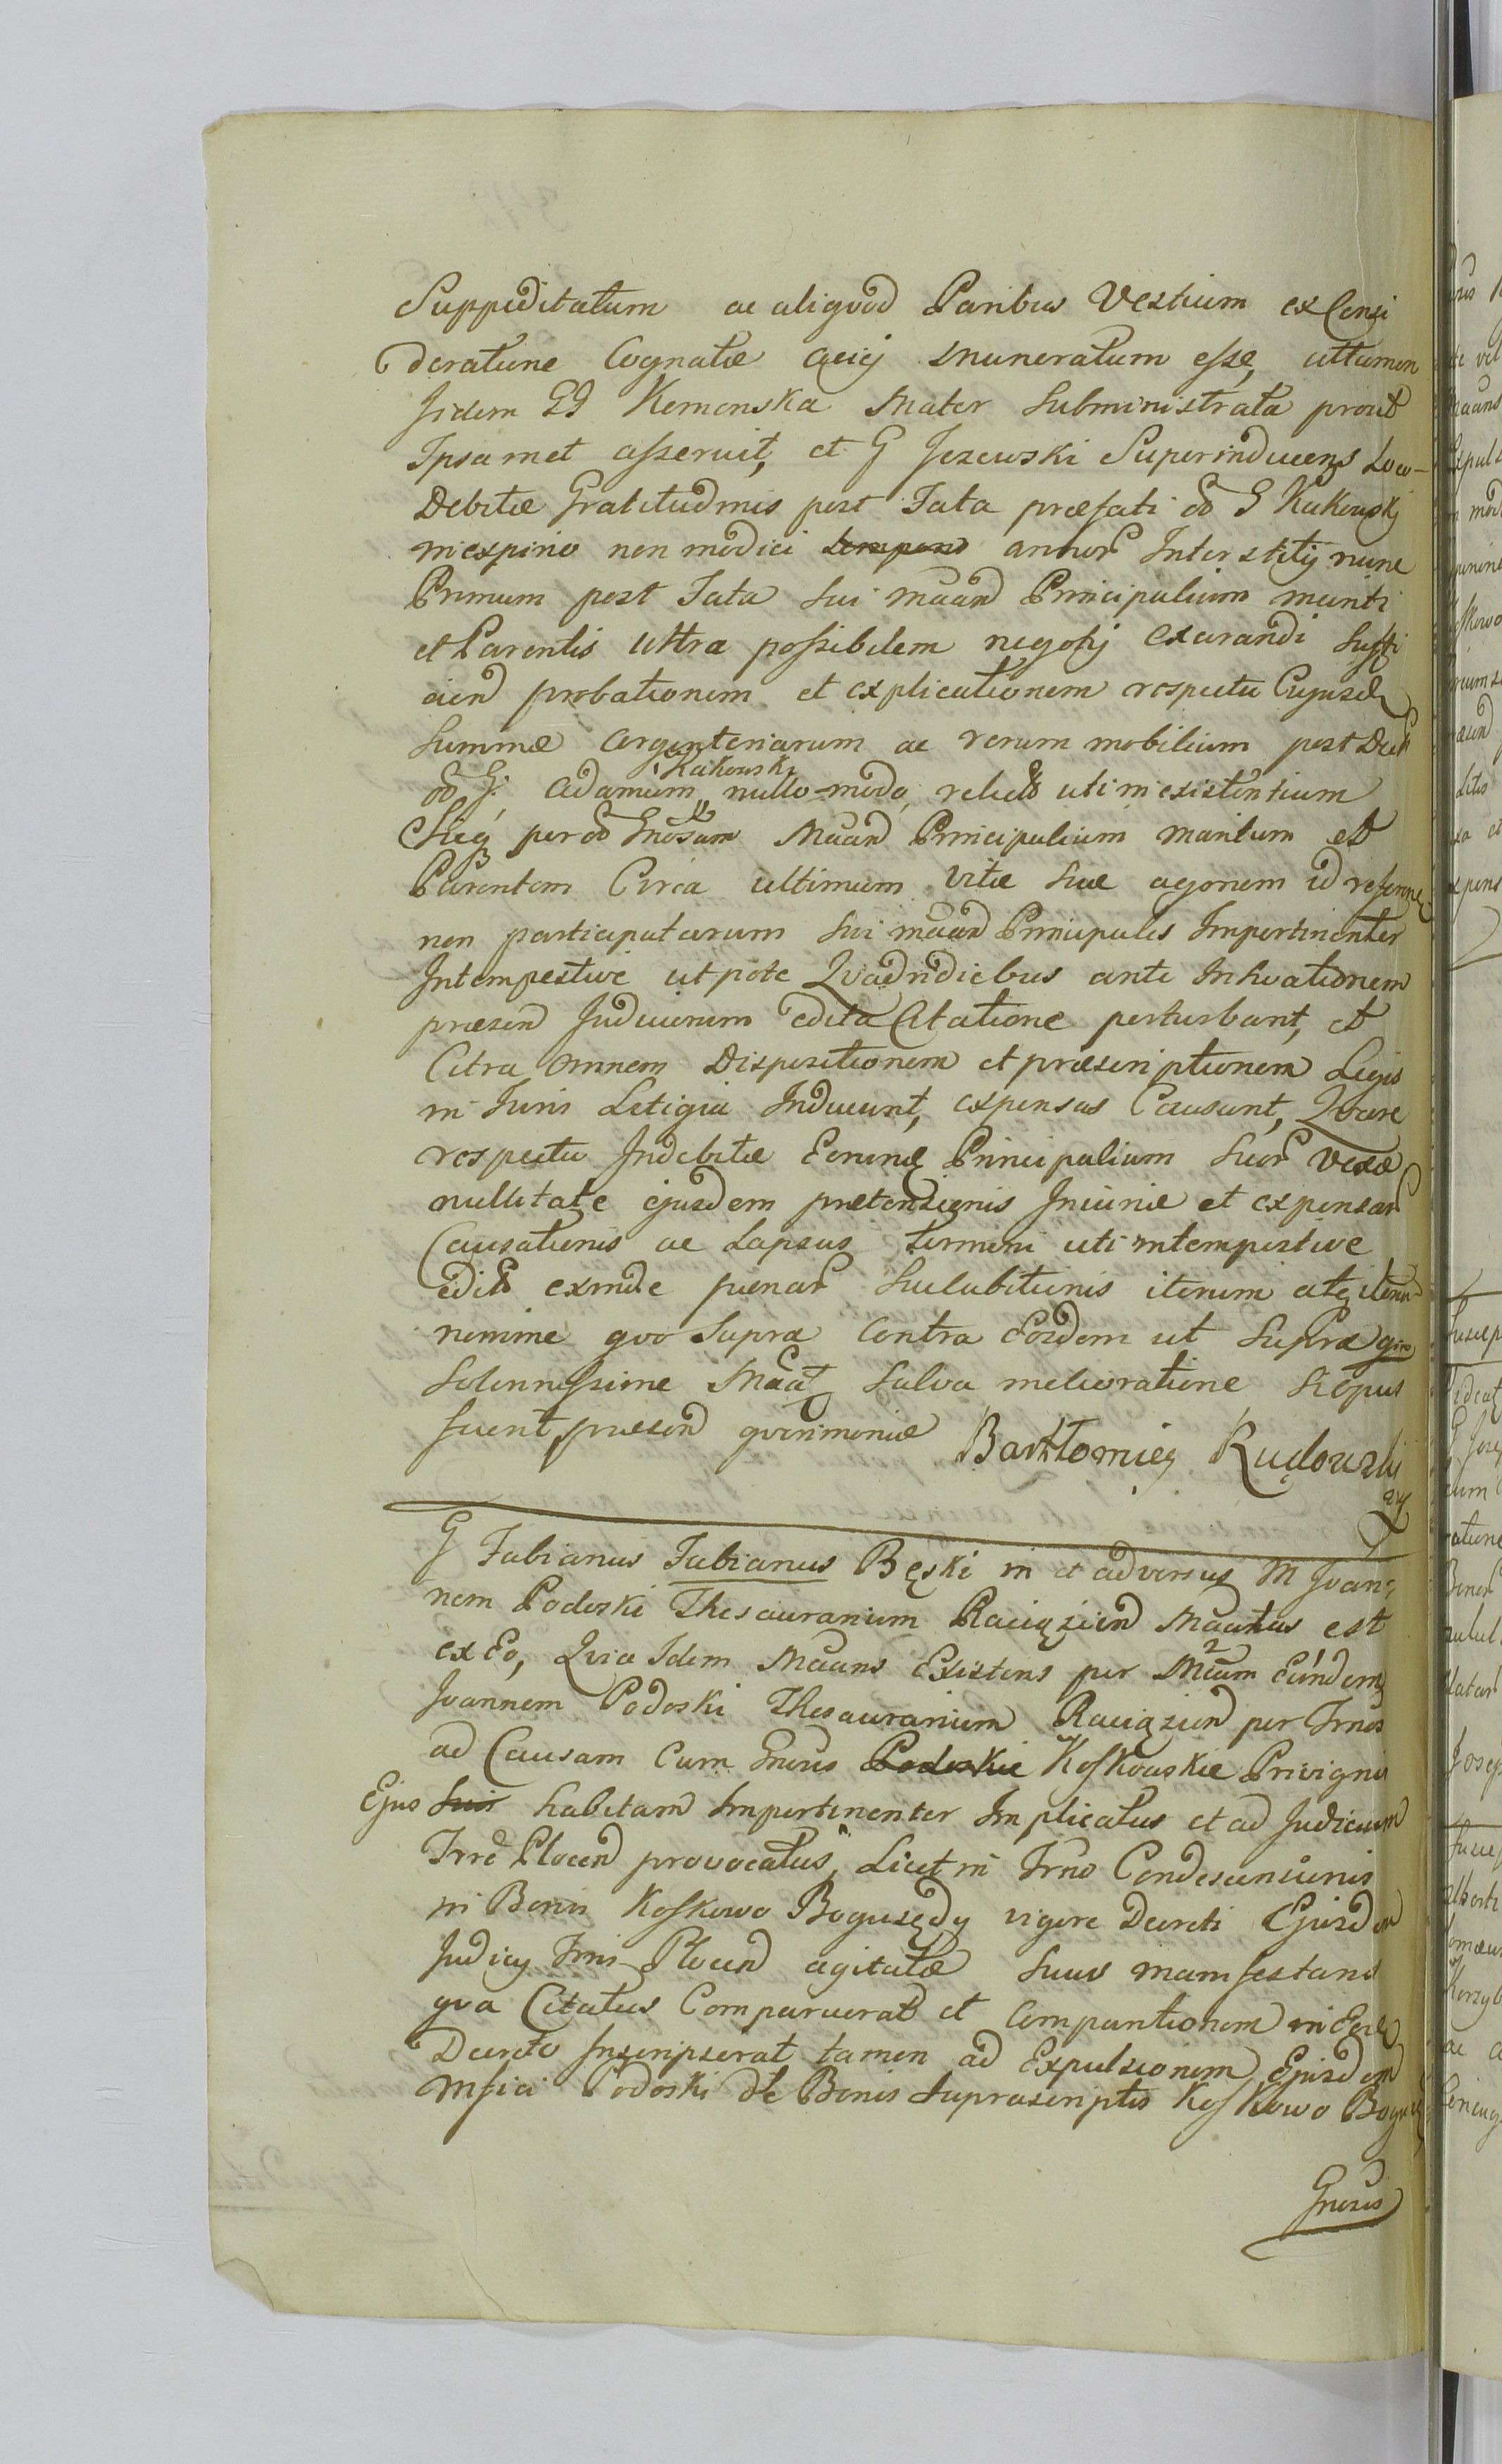 Suppeditatum ac aliquod Paribus Vestium ex Consi
deratione Cognatæ muneratum esse, attamen
Iidem GG Kemenska Mater Subministrata prout
Ipsamet asseruit, et G Jezewski Superinducens Loco
Debitæ Gratitudinis post Fata præfati ol G Rakowski
in expirio non modici temporis annor Interstitij nunc
Primum post Fata sui maãn Principalium mariti
et Parentis ultra possibilem negotij exarandi suffi
cien probationem et explicationem respectu Cujusd
Summæ argenteriarum ac rerum mobilium post
ol G. Adamum Rakowski nullo modo relict uti in existentium
per ol Gnosum Maãn Principalium maritum et
Parentem Circa ultimum vitæ suæ agonem id
non participatarum sui maãn Principales Impertinenter
Intempestive utpote Qvadridiebus ante Inhoationem
præsen Judiciorum edita Citatione perturbant, et
Citra omnem Dispositionem et præscriptionem Legis
in Juris Litigia Inducunt, expensas Causant, Qvare
respectu Indebitæ Eorunq Principalium suor vexæ
nullitate ejusdem prætensionis Injuriæ et expensar
Causationis ac Lapsus termini uti intempestive
edit exinde pænar succubitionis iterum atq iterum
nomine qvo supra Contra Eosdem ut supra
Solennissime Maãt Salva melioratione Si opus
fuerit præsen qværimoniæ Bartłomiey Rudowski
G Fabianus Fabianus Bęski in et adversus M Joan=
nem Podoski Thesaurarium Raciązien Maãtus est
ex Eo, Qvia Idem Maãns Existens per Mcum Eundem
Joannem Podoski Thesaurarium Raciązien per Trnos
ad Causam Cum Gnosis Podoskie Koskowskie Privignis
Ejus suis habitam Impertinenter Implicatus et ad Judicium
Plocen provocatus, Licet in Trno Condescensionis
in Bonis Koskowo Bogusędy vigore Decreti Ejusdem
Judicij Trris Plocen agitatæ suus manifestans
qva Citatus Comparuerat et Comparitionem in Eod
Decreto Inscripserat tamen ad Expulsionem Ejusdem
Mfici Podoski de Bonis Suprascriptis Koskowo
Gnosis